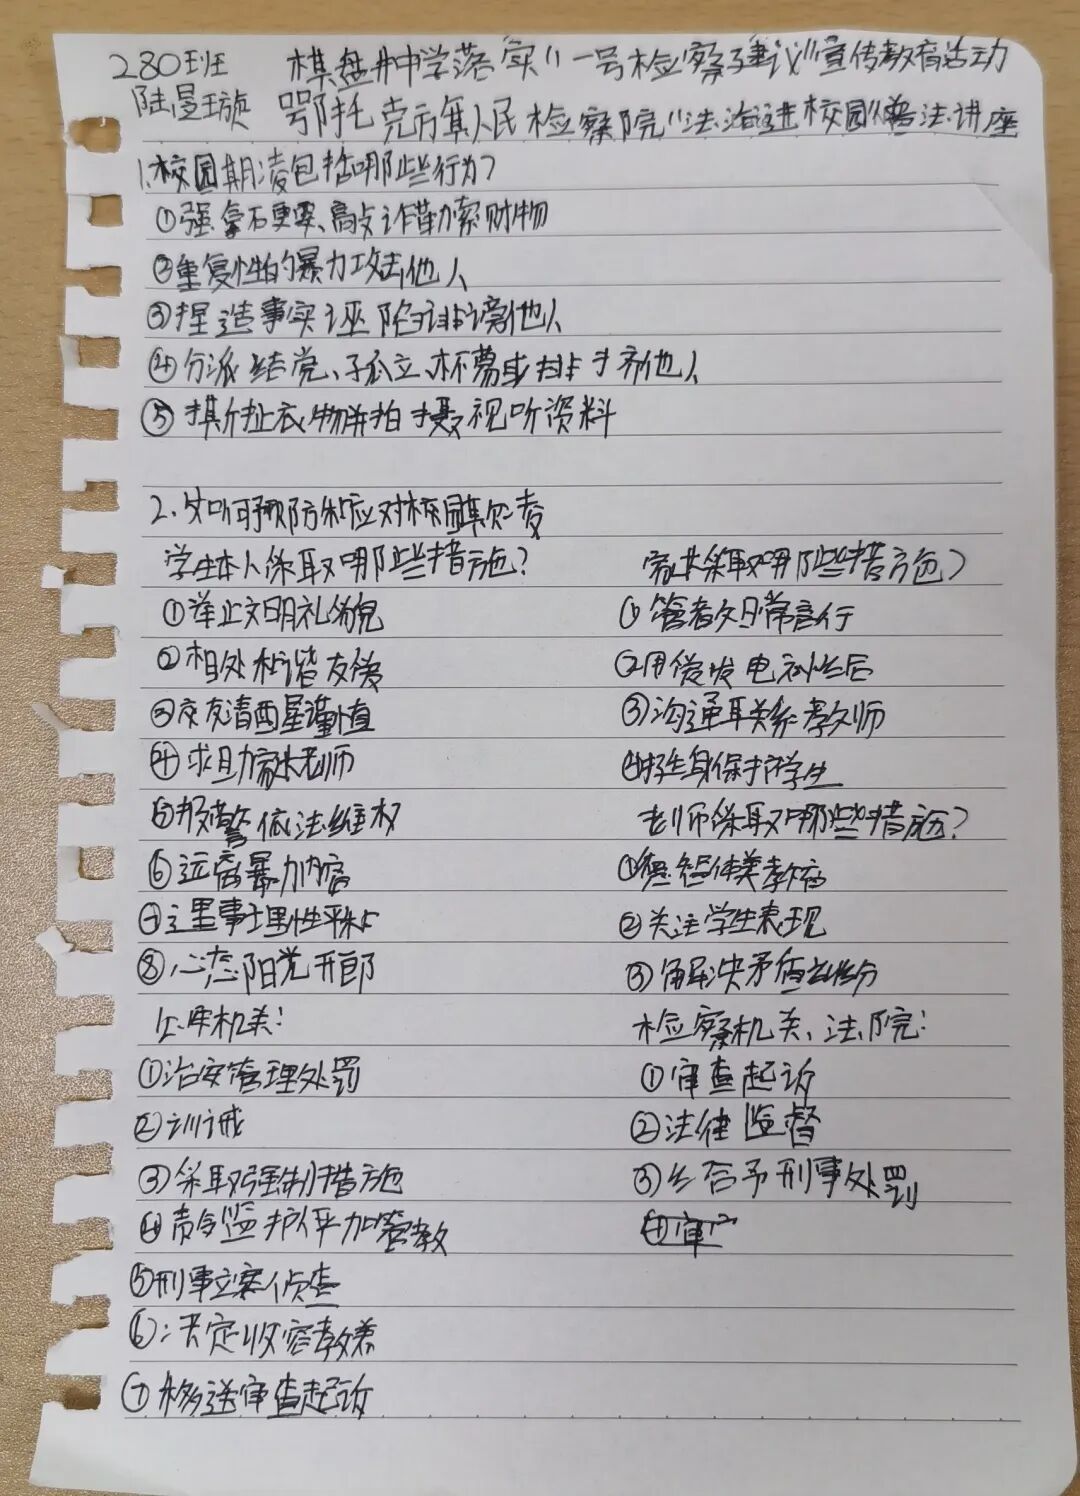 280班 棋盘井中学落实“一号检察建议”宣传教育活动
陆曼璇 鄂托克旗人民检察院“法治进校园”普法讲座
1.校园期凌包括哪些行为?
①强拿石更要、高攴诈勒索财物
②重复性的暴力攻击他人
③捏造事实诬陷诽谤他人
④分派结党、孤立、杯葛或排挤他人
⑤撕扯衣物并拍摄视听资料
2.如何预防和应对校园欺凌
学生本人采取哪些措施? 家长采取哪些措施?
①举止文明礼貌 ①管教日常言行
②相处和谐友爱 ②
③交友清西星谨慎 ③沟通联系教师
④求助家长老师 ④挺身保护学生
⑤报警依法维权 老师采取哪些措施?
⑥远离暴力内容 ①德智体美教育
⑦遇事理性平和 ②关注学生表现
⑧心态阳光开郎 ③解决矛盾纠纷
公安机关: 检察机关、法院:
①治安管理处罚 ①审查起诉
②训诫 ②法律监督
③采取强制措施 ③给予刑事处罚
④责令监护人严加管教 ④审
⑤刑事立案侦查
⑥决定收容教养
⑦移送审查起诉